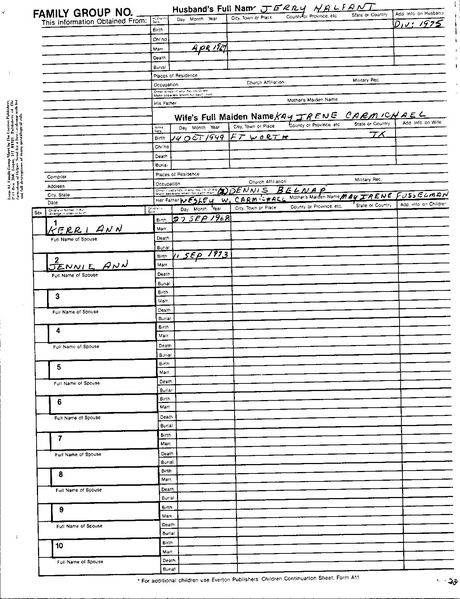 FAMILY GROUP NO.
Husband's Full Name JERRY HALFANT
This Information Obtained From:
Day Month Year City, Town or Place County or Province, etc. State or Country Add. Info on Husband
Birth DIV: 1975
Chr'nd
Marr. APR 1967
Death
Burial
Places of Residence
Occupation Church Affiliation Military Rec.
His Father Mother's Maiden Name
Wife's Full Maiden Name KAY IRENE CARMICHAEL
Day Month Year City, Town or Place County or Province, etc. State or Country Add. Info on Wife
Birth 14 OCT 1949 FT WORTH TX
Chr'nd
Death
Burial
Compiler Places of Residence
Address Occupation Church Affiliation Military Rec.
City, State (2) DENNIS BELNAP
Date Her Father WESLEY W. CARMICHAEL Mother's Maiden Name MAY IRENE FUSSELMAN
Sex Day Month Year City, Town or Place County or Province, etc. State or Country Add. Info on Children
1 Birth 27 SEP 1968
KERRI ANN Marr.
Full Name of Spouse Death
Burial
2 Birth 11 SEP 1973
JENNIE ANN Marr.
Full Name of Spouse Death
Burial
3 Birth
Marr.
Full Name of Spouse Death
Burial
4 Birth
Marr.
Full Name of Spouse Death
Burial
5 Birth
Marr.
Full Name of Spouse Death
Burial
6 Birth
Marr.
Full Name of Spouse Death
Burial
7 Birth
Marr.
Full Name of Spouse Death
Burial
8 Birth
Marr.
Full Name of Spouse Death
Burial
9 Birth
Marr.
Full Name of Spouse Death
Burial
10 Birth
Marr.
Full Name of Spouse Death
Burial
* For additional children use Everton Publishers' Children Continuation Sheet, Form A11